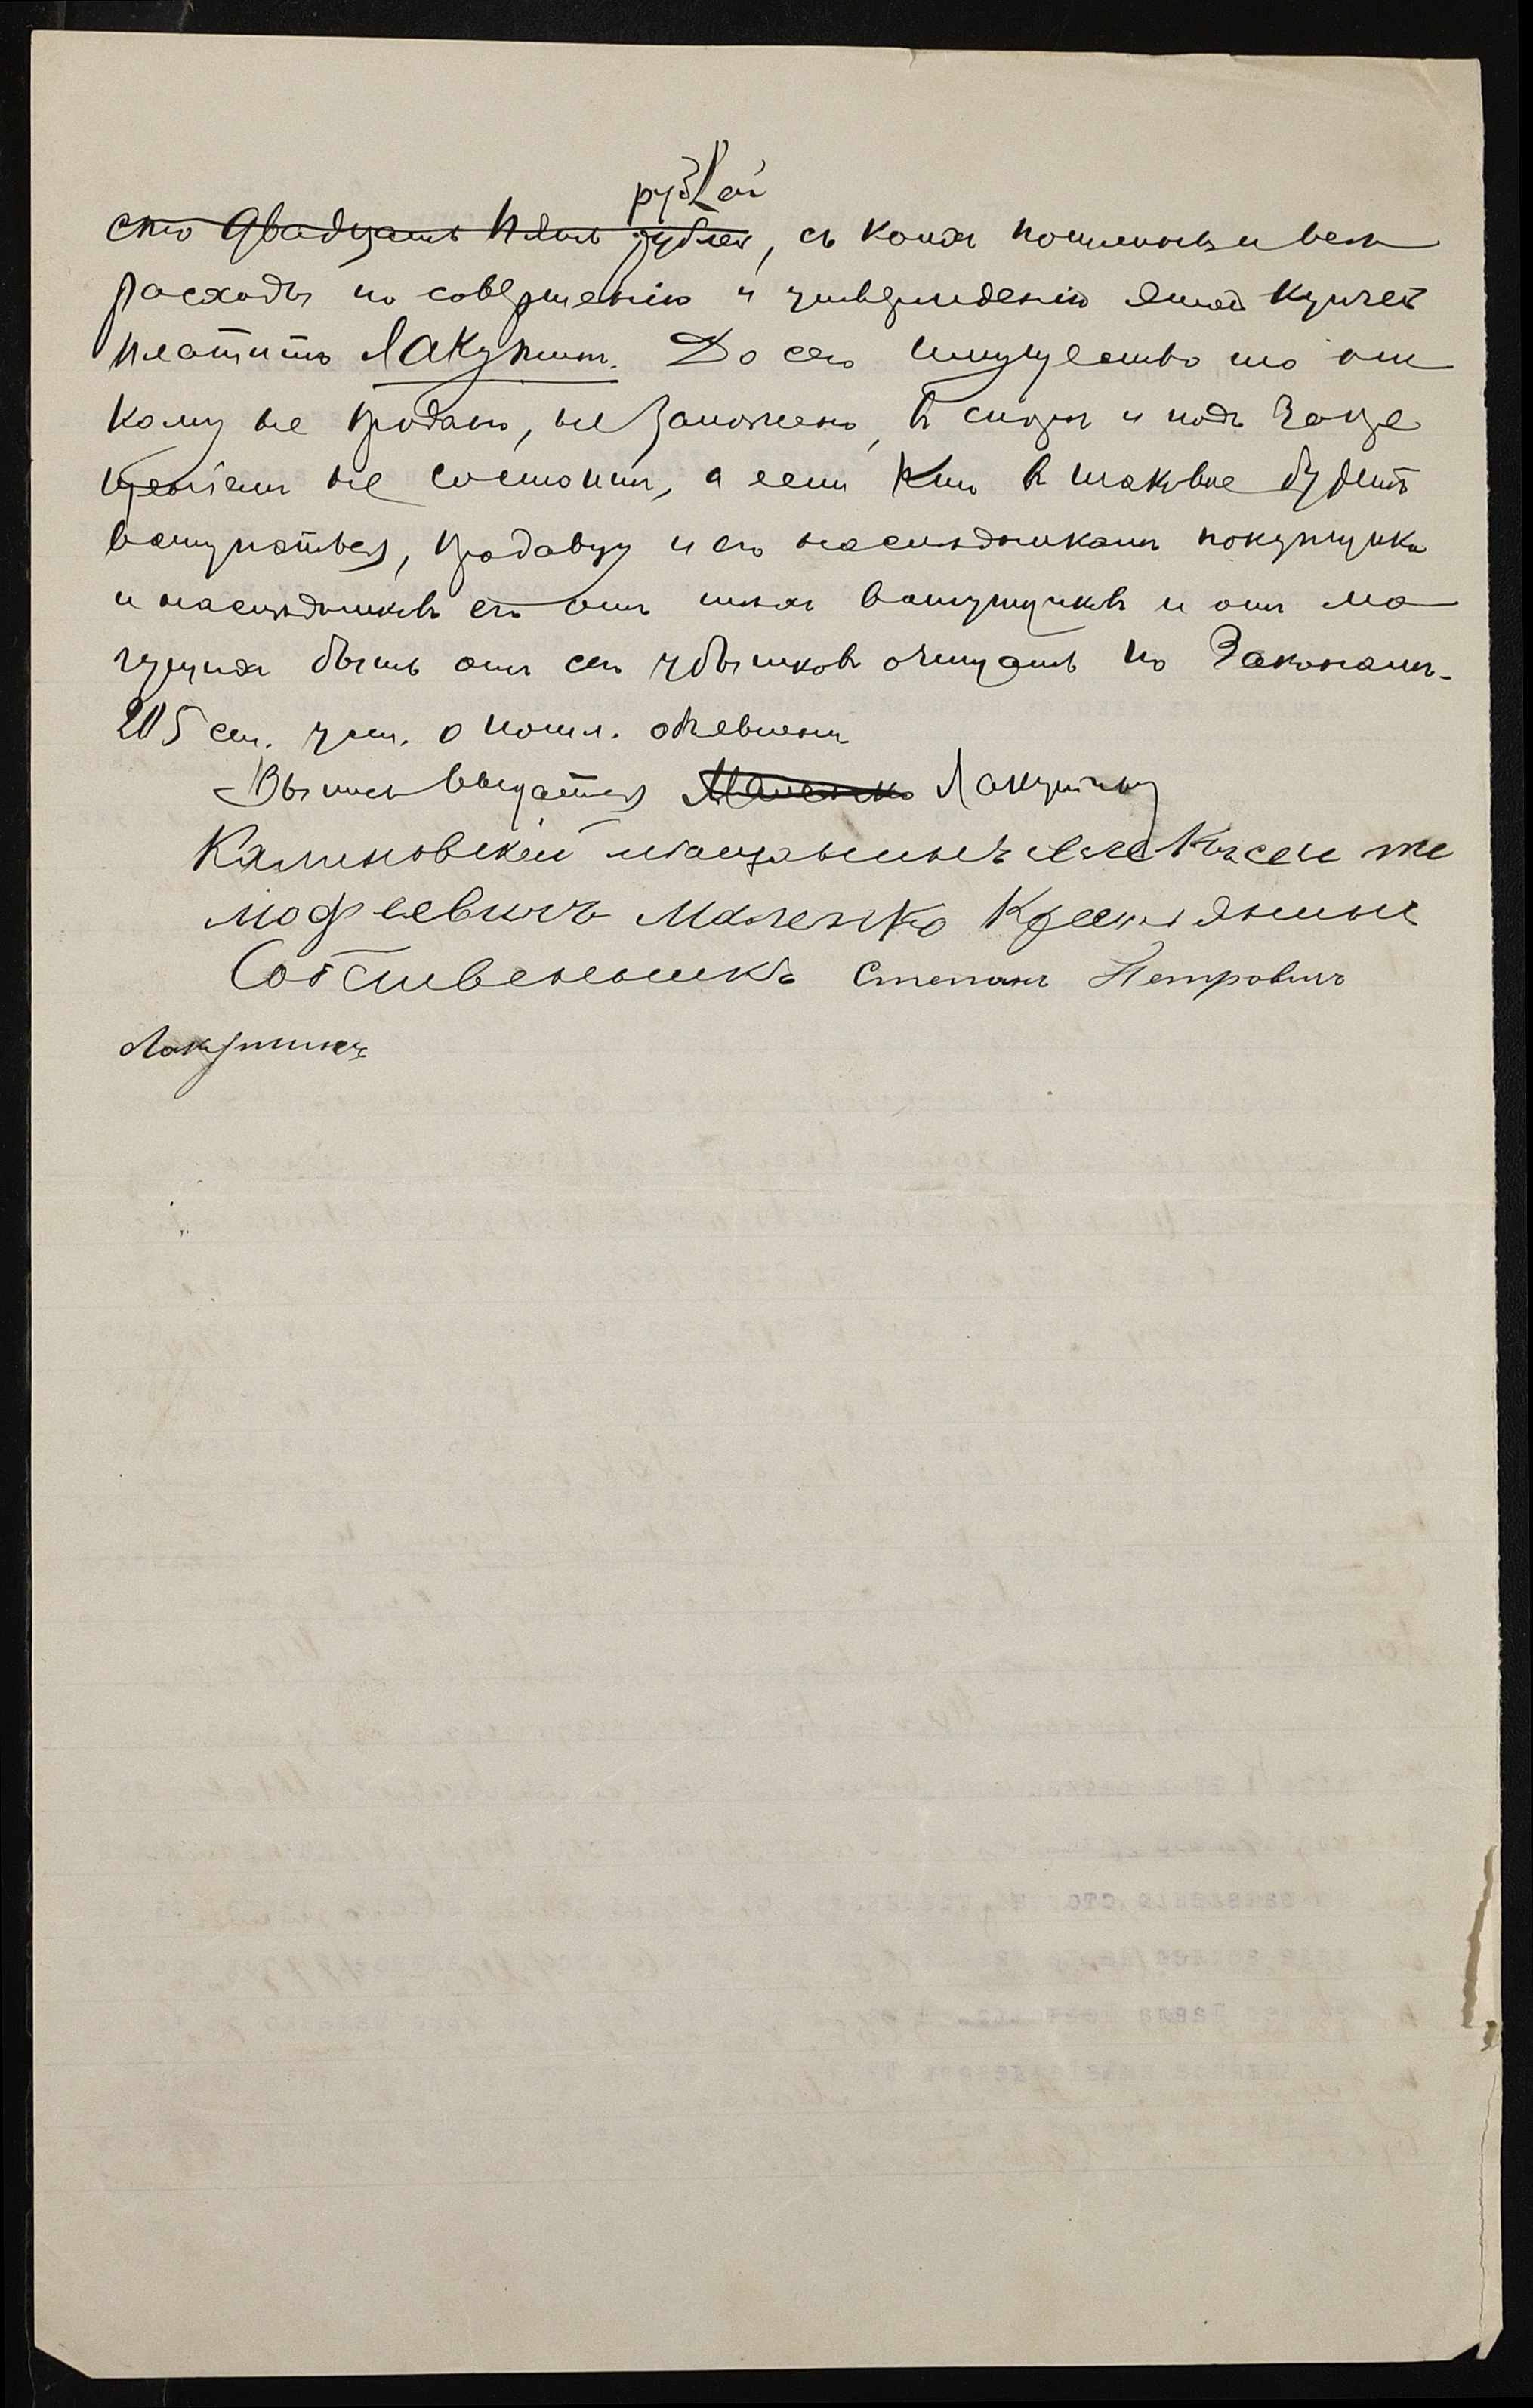 рублей
сто двадцать пять рублей, съ коихъ пошлины и все
расходы по совершенію и утвержденію этой купчей
платитъ Лакушин. До сего имущество то ни
кому не продано, не заложено, въ спорѣ и подъ запре
щеніемъ не состоитъ, а если кто въ таковое будетъ
вступаться, продавцу и его наслѣдникамъ покупщика
и наслѣдниковъ его отъ тѣхъ вступщиковъ и отъ мо
гущихъ быть отъ сего убытковъ очищать по законамъ.
205 ст. уст. о пошл. объявлена
Выпись выдать Маленко Лакушину
Калиновский мѣщанинъ Алекъсей ти
мофеевичъ Маленко Крестьянинъ
Собственникъ Степанъ Петровичъ
Лакушинъ